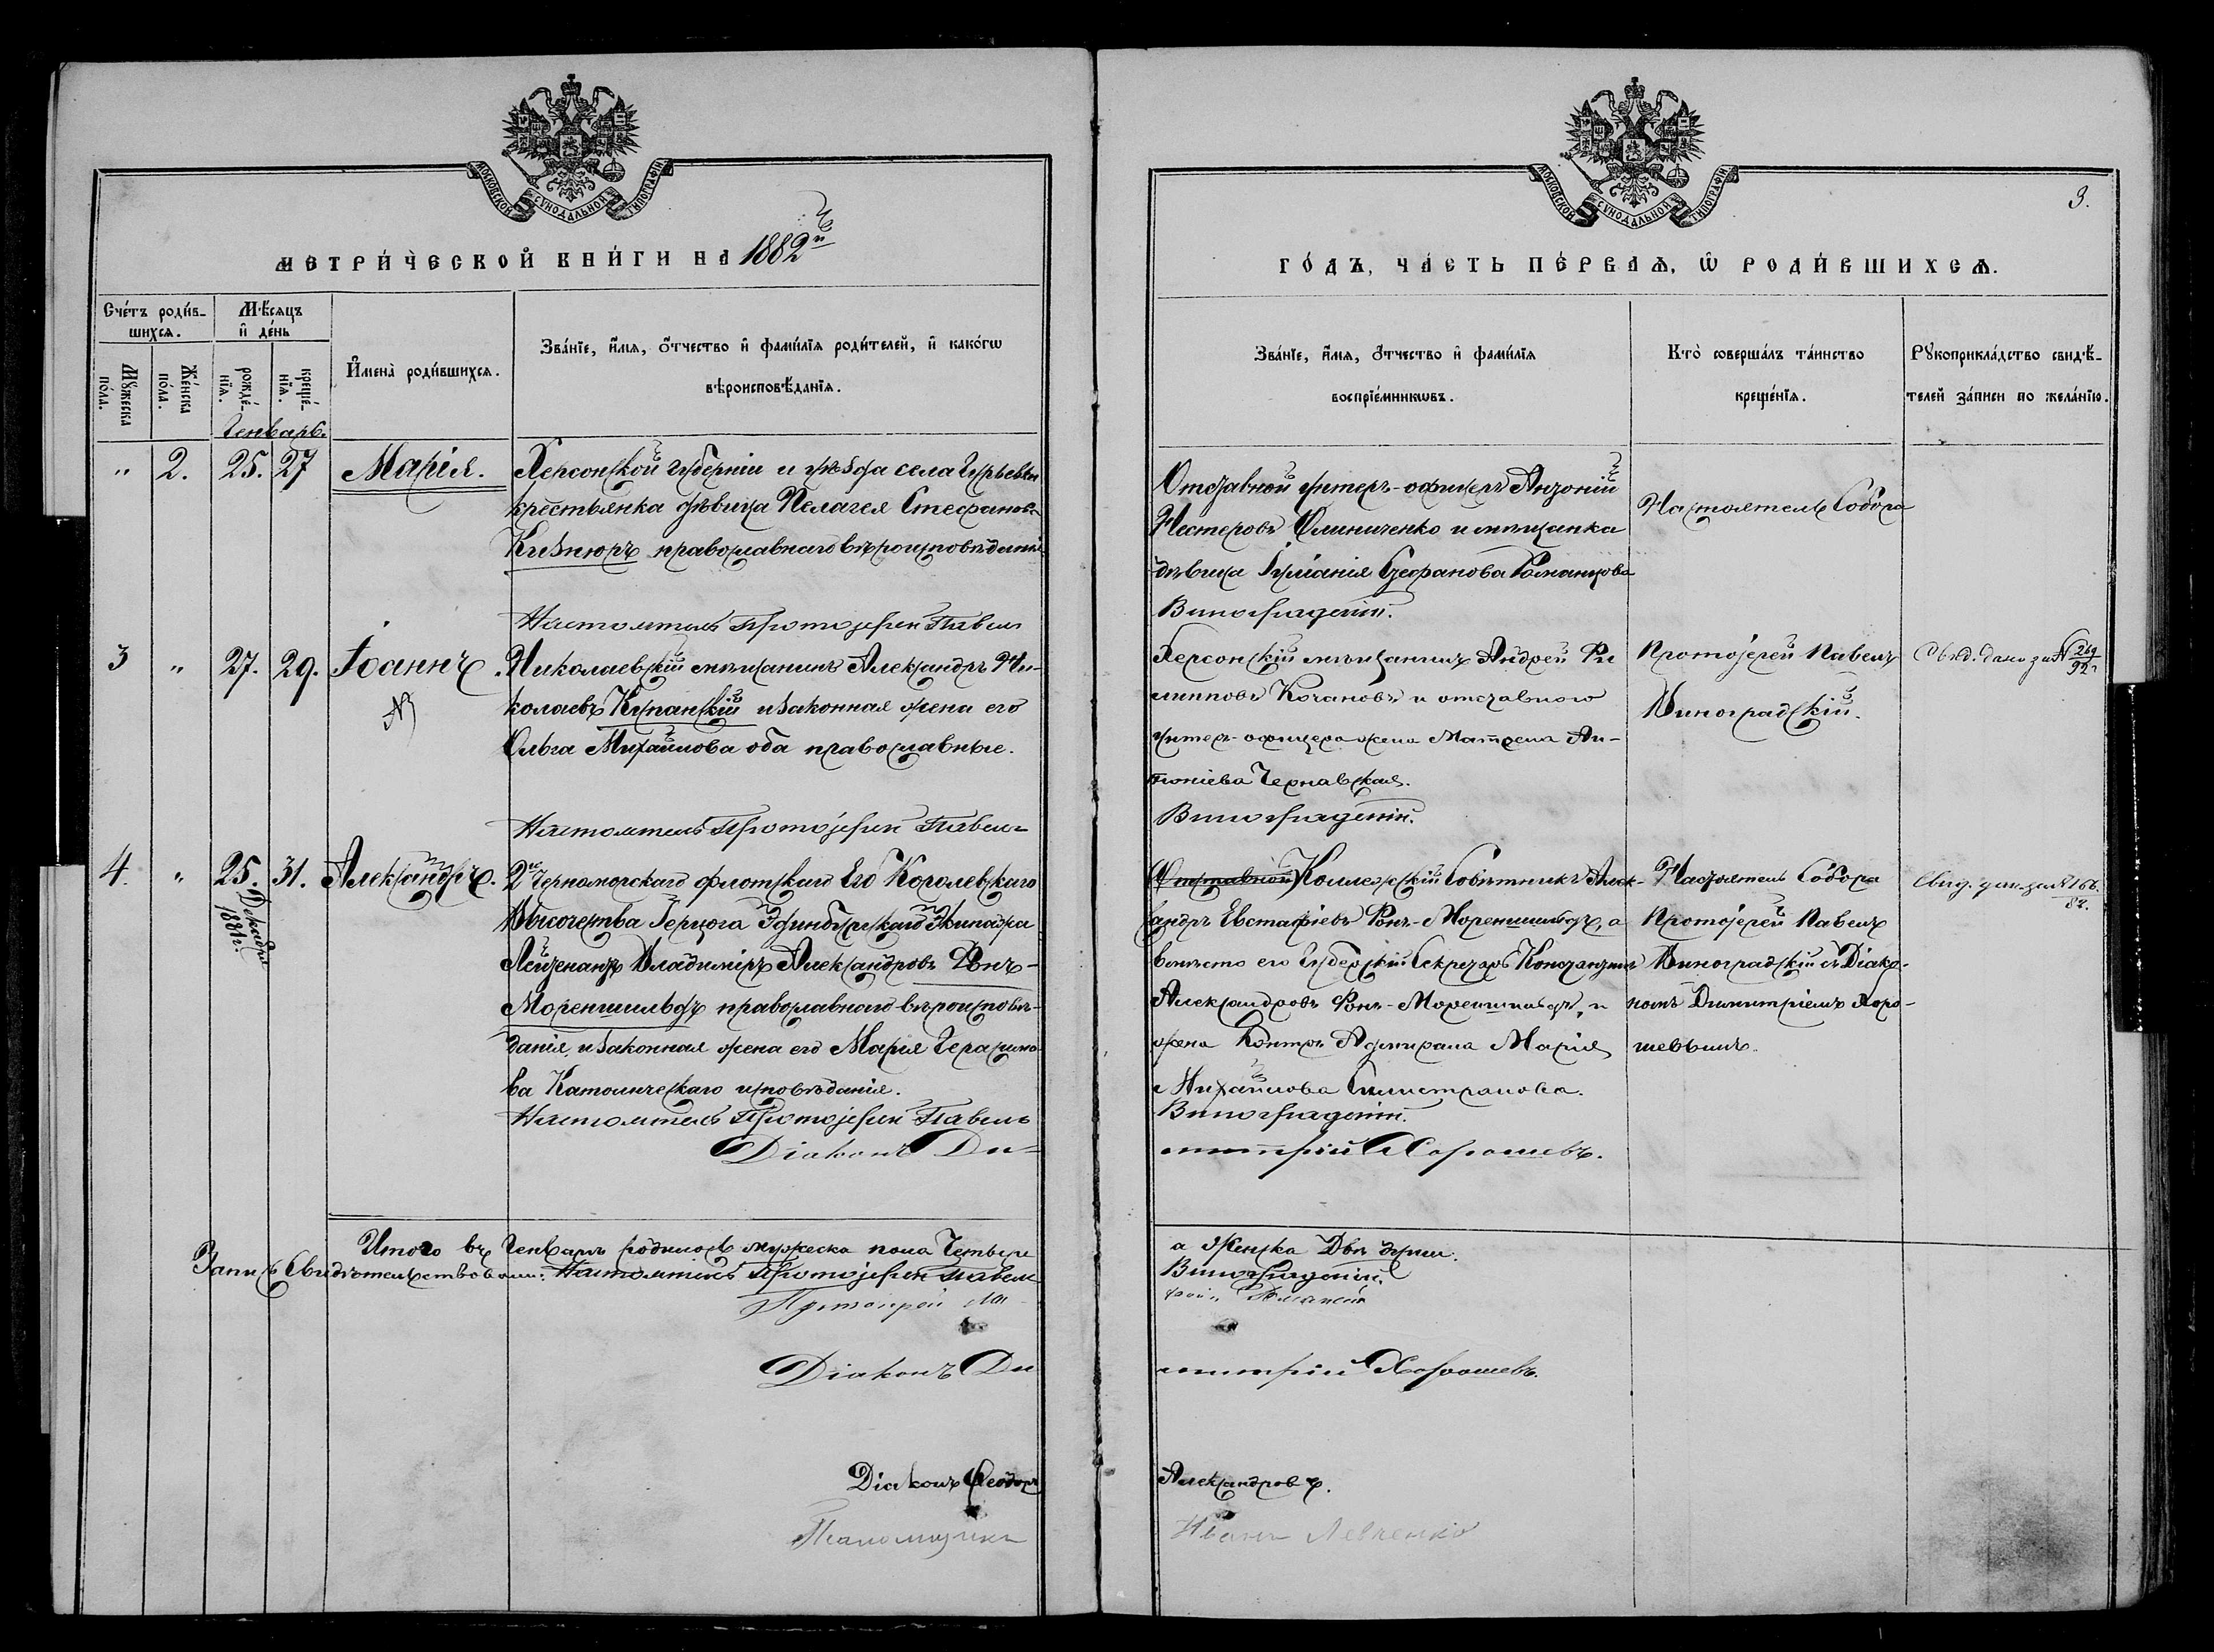 МОСКОВСКОЙ СѴНОДАЛЬНОЙ ТИПОГРАФІИ
МЕТРИ́ЧЕСКОЙ КНИ́ГИ НА 1882й
Сче́тъ роди́в-
шихсѧ.
Мѣ́сѧцъ
и҆ де́нь
Мꙋ́жеска
по́ла.
Же́нска
по́ла.
рожде́-
нїѧ.
креще́-
нїѧ.
И҆мена̀ роди́вшихсѧ.
Зва́нїе, и҆́мѧ, ѻ҆́тчество и҆ фами́лїѧ роди́телей, и҆ како́гѡ
вѣроисповѣ́данїѧ.
Генварь.
" 2. 25. 27 Марія. Херсонской губерніи и уѣзда села Гурьевки
крестьянка дѣвица Пелагея Стефанова
православнаго вѣроисповѣданія
Настоятель Протоіерей Павелъ
3 " 27. 29. Іоаннъ. Николаевскій мѣщанинъ Александръ Ни-
колаевъ и законная жена его
Ольга Михайлова оба православные.
Настоятель Протоіерей Павелъ
4. " 25. Декабря 1881г. 31. Александръ. 2го Черноморскаго флотскаго Его Королевскаго
Высочества Герцога Эдинбургскаго Экипажа
Лейтенантъ Владиміръ Александровъ Фонъ-
Мореншильдъ православнаго вѣроисповѣ-
данія, и законная жена его Марія Герасимо-
ва Католическаго исповѣданія.
Настоятель Протоіерей Павелъ
Діаконъ Ди-
Итого въ Генварѣ родилось мужеска пола Четыре
Запись Свидѣтельствовали: Настоятель Протоіерей Павелъ
Протоіерей
Діаконъ Ди
Діаконъ Ѳеодоръ
Псаломщикъ
МОСКОВСКОЙ СѴНОДАЛЬНОЙ ТИПОГРАФІИ
3.
ГО́ДЪ, ЧА́СТЬ ПЕ́РВАѦ, Ѡ҆ РОДИ́ВШИХСѦ.
Зва́нїе, и҆́мѧ, ѻ҆́тчество и҆ фами́лїѧ
воспрїе́мникѡвъ.
Кто̀ соверша́лъ та́инство
креще́нїѧ.
Рꙋкоприкла́дство свидѣ́-
телей за́писи по жела́нїю.
Отставной унтеръ-офицеръ Антоній
Нестеровъ Олиниченко и мѣщанка
дѣвица Стефанова Романцова
Виноградскій.
Настоятель Собора
Херсонскій мѣщанинъ Андрей Фи
липповъ Кочановъ и отставного
унтеръ-офицера жена Матрена Ан-
тоніева Чернавская.
Виноградскій.
Протоіерей Павелъ
Виноградскій.
Свид. дано за № 269/92г
(Отставной) Коллежскій Совѣтникъ Алек-
сандръ Евстафіевъ Фонъ-Мореншильдъ, а
вмѣсто его Губернскій Секретарь Константинъ
Александровъ Фонъ-Мореншильдъ, и
жена Контръ Адмирала Марія
Михайлова
Виноградскій.
митрій Хорошевъ.
Настоятель Собора
Протоіерей Павелъ
Виноградскій съ Діако-
номъ Димитріемъ Хоро-
шевымъ.
Свид. дан. за № 166./82.
а Женска Двѣ души.
Виноградскій.
митрій Хорошевъ.
Александровъ.
Иванъ Левченко